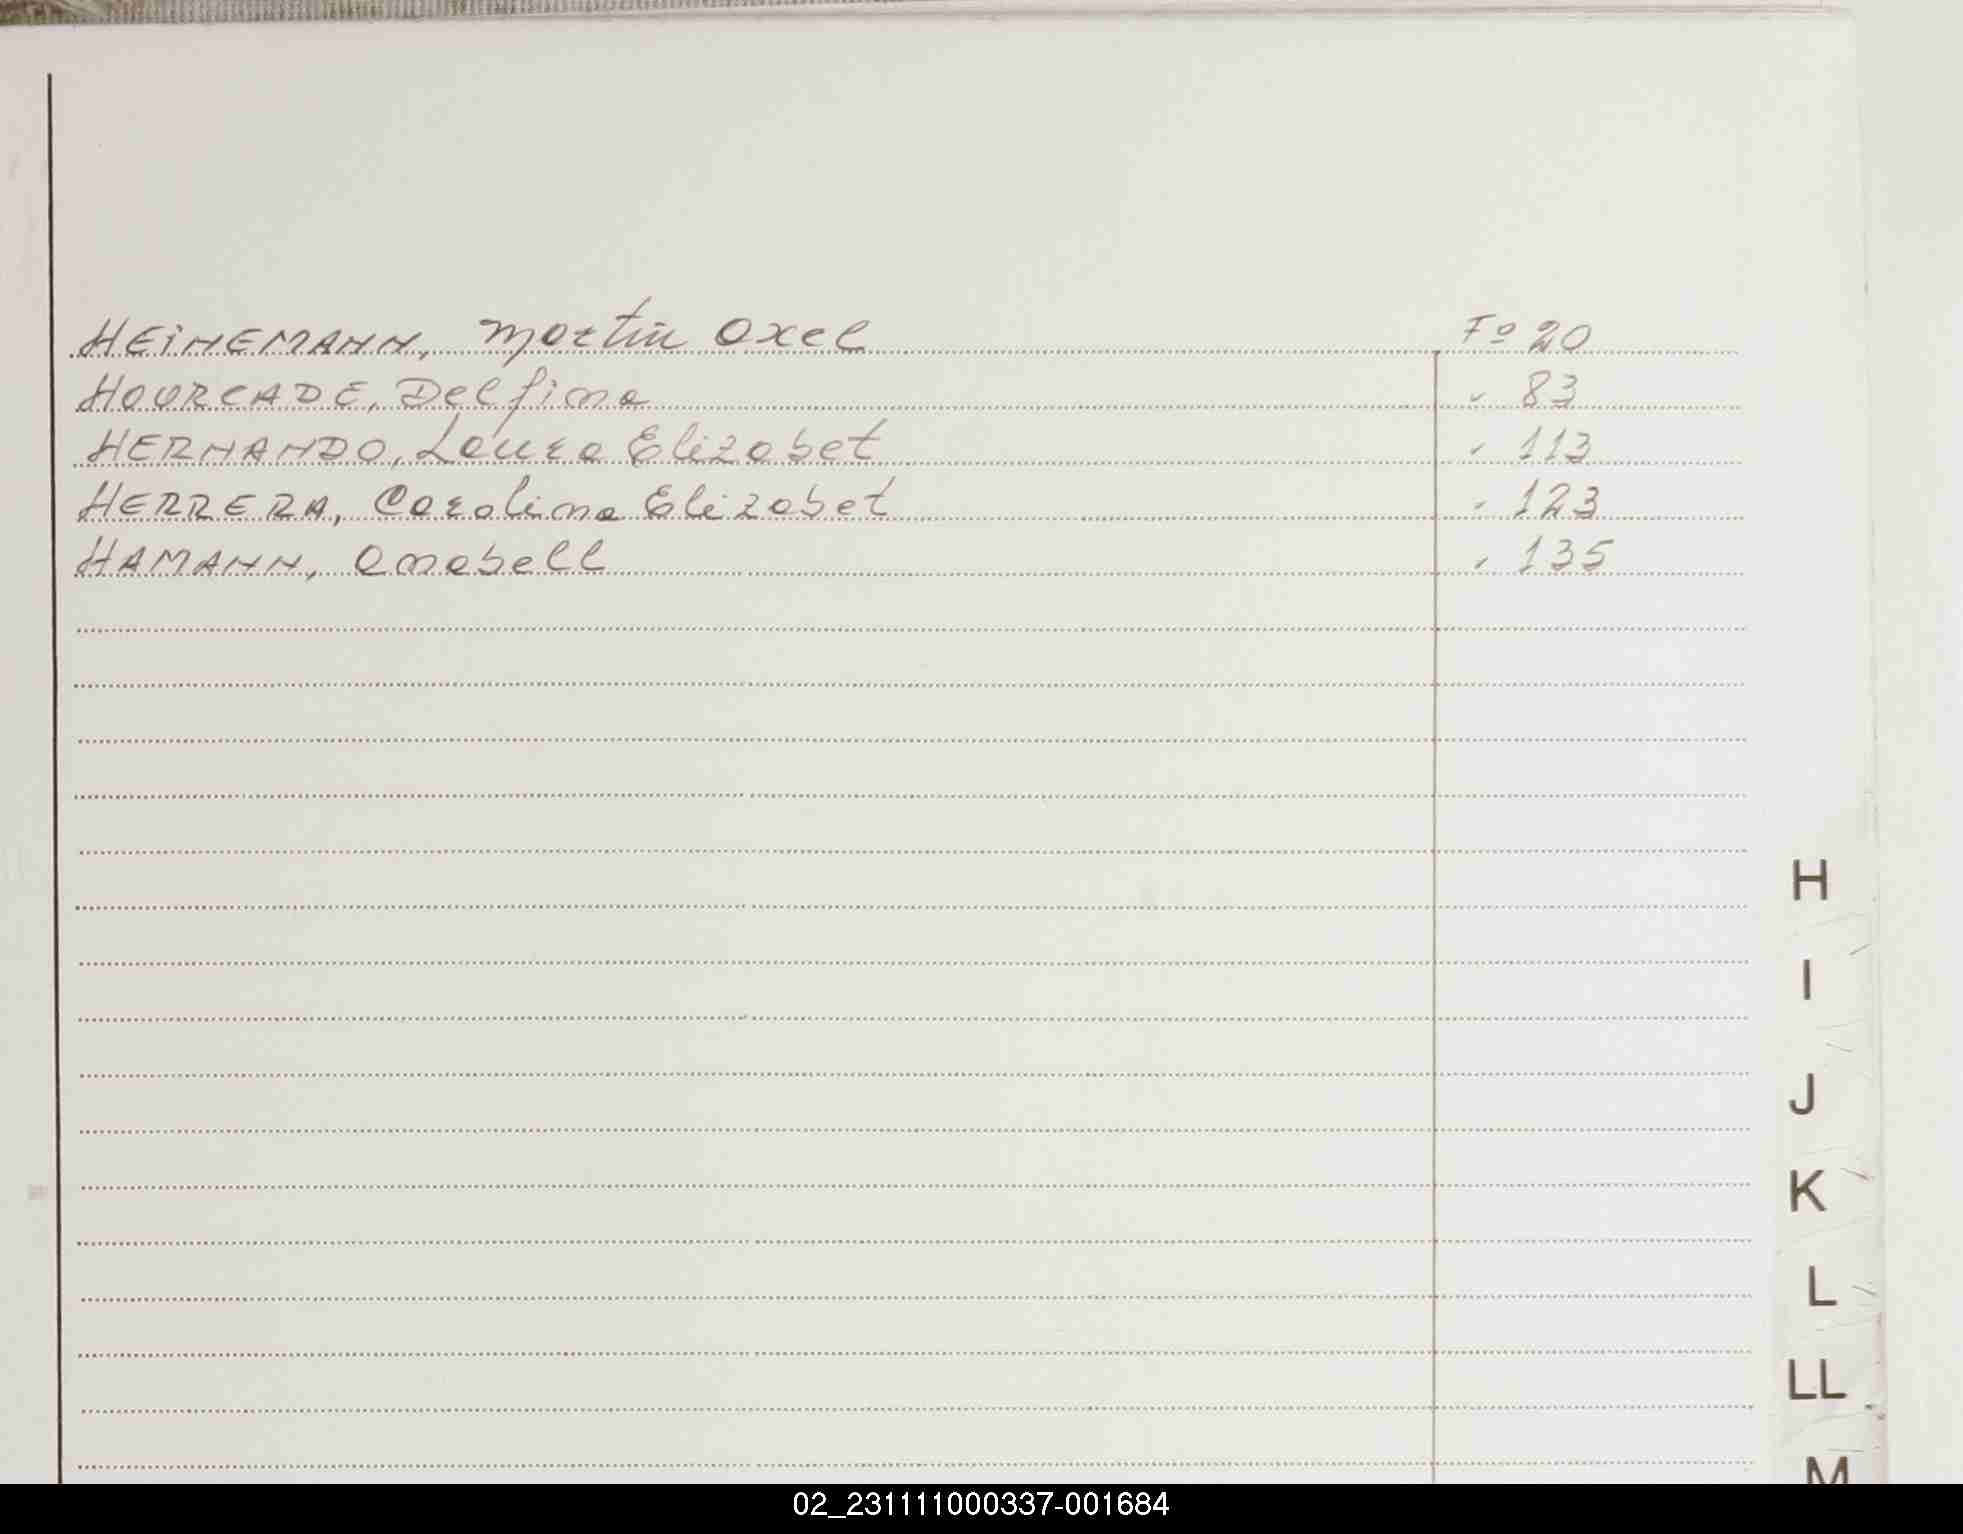 HEINEMANN, Martin Axel Fº 20
HOURCADE, Delfina " 83
HERNANDO, Laura Elizabet " 113
HERRERA, Carolina Elizabet " 123
HAMANN, Anabell " 135
H
I
J
K
L
LL
M
02_231111000337-001684